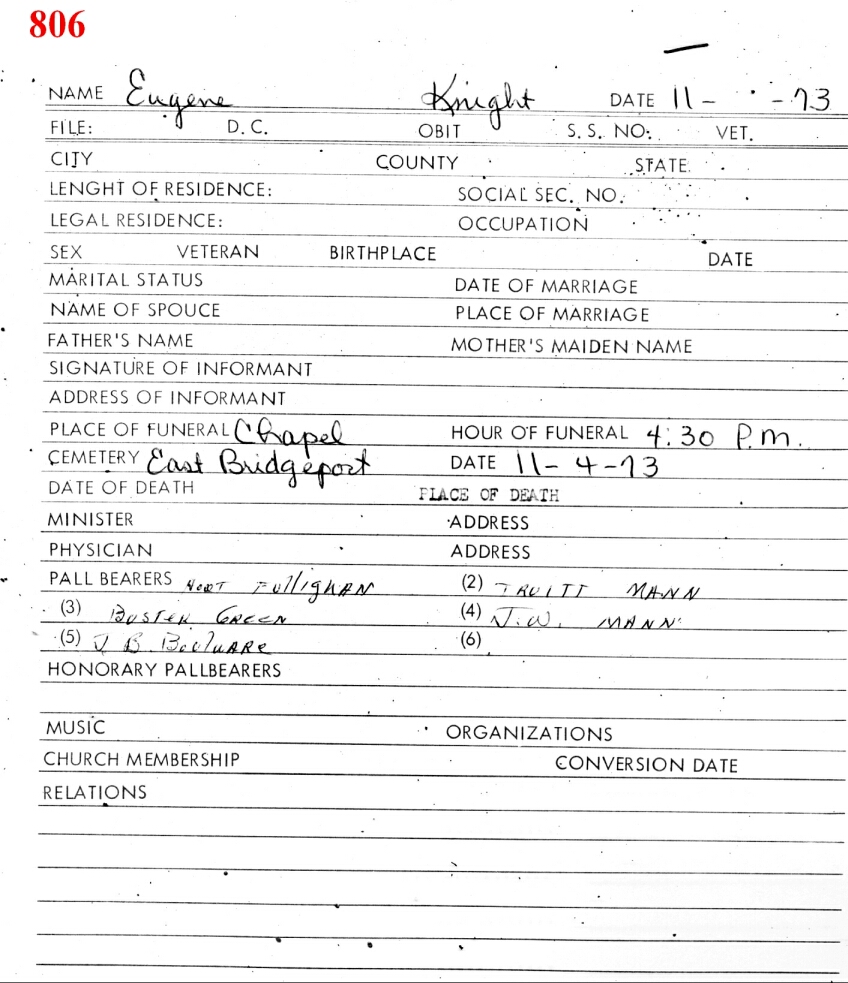 806
NAME Eugene Knight DATE 11- -73
FILE: D. C. OBIT S. S. NO: VET.
CITY COUNTY STATE
LENGHT OF RESIDENCE: SOCIAL SEC. NO.
LEGAL RESIDENCE: OCCUPATION
SEX VETERAN BIRTHPLACE DATE
MARITAL STATUS DATE OF MARRIAGE
NAME OF SPOUCE PLACE OF MARRIAGE
FATHER'S NAME MOTHER'S MAIDEN NAME
SIGNATURE OF INFORMANT
ADDRESS OF INFORMANT
PLACE OF FUNERAL Chapel HOUR OF FUNERAL 4:30 P.m.
CEMETERY East Bridgeport DATE 11-4-73
DATE OF DEATH PLACE OF DEATH
MINISTER ADDRESS
PHYSICIAN ADDRESS
PALL BEARERS (2) TRUITT MANN
(3) BUSTER GREEN (4) J.W. MANN
(5) J B (6)
HONORARY PALLBEARERS
MUSIC ORGANIZATIONS
CHURCH MEMBERSHIP CONVERSION DATE
RELATIONS